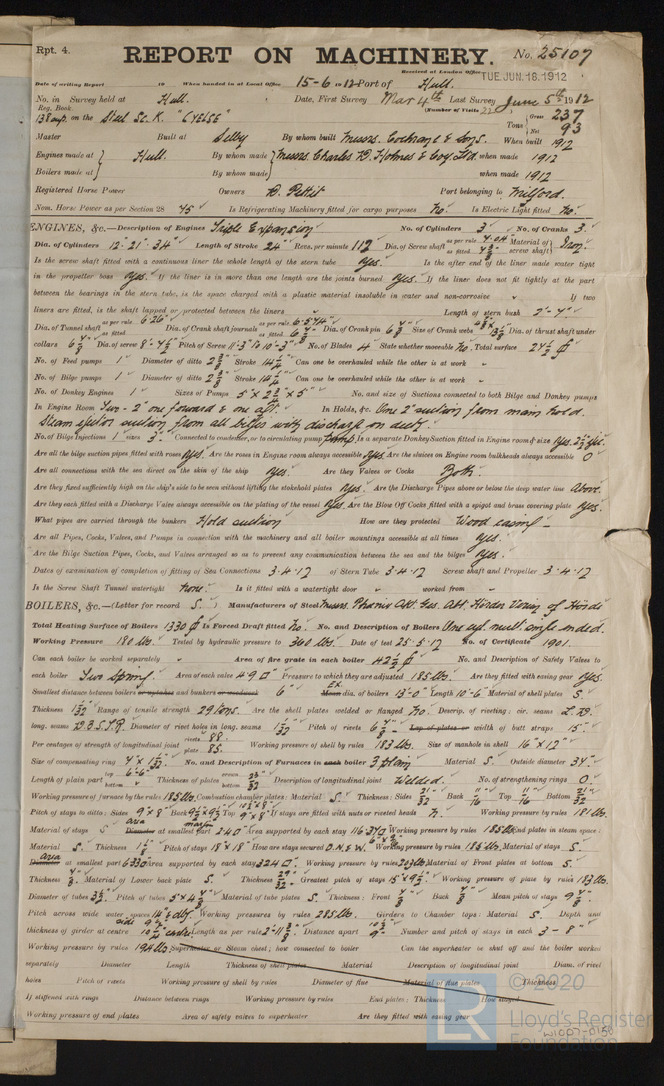 Rpt. 4.
REPORT ON MACHINERY.
No. 25107
Received at London Office TUE. JUN. 18. 1912
Date of writing Report 19 When handed in at Local Office 15-6-1912 Port of Hull.
No. in Survey held at Hull. Date, First Survey Mar 4th Last Survey June 5th 1912
Reg. Book. (Number of Visits
on the Steel Sc. K. "CYELSE" Tons { Gross 237 Net 93
Master Built at Selby By whom built Messrs. Cochrane & Sons. When built 1912
Engines made at Hull. By whom made Messrs. Charles D. Holmes & Coy. Ltd. when made 1912
Boilers made at By whom made when made 1912
Registered Horse Power Owners D. Pettit Port belonging to Milford.
Nom. Horse Power as per Section 28 45 Is Refrigerating Machinery fitted for cargo purposes No. Is Electric Light fitted No.
ENGINES, &c.—Description of Engines Triple Expansion No. of Cylinders 3 No. of Cranks 3.
Dia. of Cylinders 12"-21"-34" Length of Stroke 24" Revs. per minute 112 Dia. of Screw shaft as per rule as fitted Material of screw shaft Iron.
Is the screw shaft fitted with a continuous liner the whole length of the stern tube Yes. Is the after end of the liner made water tight
in the propeller boss Yes. If the liner is in more than one length are the joints burned Yes. If the liner does not fit tightly at the part
between the bearings in the stern tube, is the space charged with a plastic material insoluble in water and non-corrosive " If two
liners are fitted, is the shaft lapped or protected between the liners " Length of stern bush 2'-4"
Dia. of Tunnel shaft as per rule 6.26" as fitted Dia. of Crank shaft journals as per rule 6.574" as fitted Dia. of Crank pin Size of Crank webs Dia. of thrust shaft under
collars Dia. of screw 8'-4½" Pitch of Screw 11'-3" to 10'-3" No. of Blades 4 State whether moveable No. Total surface 24½
No. of Feed pumps 1 Diameter of ditto 2⅜" Stroke 14¼" Can one be overhauled while the other is at work "
No. of Bilge pumps 1 Diameter of ditto 2⅜" Stroke 14¼" Can one be overhauled while the other is at work "
No. of Donkey Engines 1 Sizes of Pumps No. and size of Suctions connected to both Bilge and Donkey pumps
In Engine Room Two - 2" one forward & one aft. In Holds, &c. One 2" suction from main hold.
Steam ejector suction from all bilges with discharge on deck.
No. of Bilge Injections 1 sizes 3" Connected to condenser, or to circulating pump Pump Is a separate Donkey Suction fitted in Engine room & size Yes.
Are all the bilge suction pipes fitted with roses Yes. Are the roses in Engine room always accessible Yes. Are the sluices on Engine room bulkheads always accessible 0
Are all connections with the sea direct on the skin of the ship Yes. Are they Valves or Cocks Both.
Are they fixed sufficiently high on the ship's side to be seen without lifting the stokehold plates Yes. Are the Discharge Pipes above or below the deep water line Above.
Are they each fitted with a Discharge Valve always accessible on the plating of the vessel Yes. Are the Blow Off Cocks fitted with a spigot and brass covering plate Yes.
What pipes are carried through the bunkers Hold suction How are they protected Wood casing -
Are all Pipes, Cocks, Valves, and Pumps in connection with the machinery and all boiler mountings accessible at all times Yes.
Are the Bilge Suction Pipes, Cocks, and Valves arranged so as to prevent any communication between the sea and the bilges Yes.
Dates of examination of completion of fitting of Sea Connections 3.4.12 of Stern Tube 3.4.12 Screw shaft and Propeller 3.4.12
Is the Screw Shaft Tunnel watertight None. Is it fitted with a watertight door " worked from "
BOILERS, &c.—(Letter for record S.) Manufacturers of Steel Messrs. Phoenix Akt. Ges. Abt. Hörder Verein of Hörde
Total Heating Surface of Boilers 1330 Is Forced Draft fitted No. No. and Description of Boilers One cyl. mult. single ended.
Working Pressure 180 lbs. Tested by hydraulic pressure to 360 lbs. Date of test 25.5.12 No. of Certificate 1901.
Can each boiler be worked separately " Area of fire grate in each boiler 42½ No. and Description of Safety Valves to
each boiler Two Spring. Area of each valve 4.90 Pressure to which they are adjusted 185 lbs. Are they fitted with easing gear Yes.
Smallest distance between boilers or uptakes and bunkers or woodwork 6" Mean dia. of boilers 13'-0" Length 10'-6" Material of shell plates S.
Thickness Range of tensile strength 29 tons. Are the shell plates welded or flanged No. Descrip. of riveting: cir. seams L.D.
long. seams D.B.S.T.R. Diameter of rivet holes in long. seams Pitch of rivets Lap of plates or width of butt straps 15"
Per centages of strength of longitudinal joint rivets 88. plate 85. Working pressure of shell by rules 183 lbs. Size of manhole in shell 16" x 12"
Size of compensating ring No. and Description of Furnaces in each boiler 3 plain Material S. Outside diameter 34"
Length of plain part top 6'-6" bottom Thickness of plates crown bottom Description of longitudinal joint Welded. No. of strengthening rings 0
Working pressure of furnace by the rules 185 lbs. Combustion chamber plates: Material S. Thickness: Sides Back Top Bottom
Pitch of stays to ditto: Sides 9" x 8" Back Top If stays are fitted with nuts or riveted heads N. Working pressure by rules 181 lbs.
Material of stays S area Diameter at smallest part 2.40 Area supported by each stay Working pressure by rules 185 lbs. End plates in steam space:
Material S. Thickness Pitch of stays 18" x 18" How are stays secured D.N. & W. Working pressure by rules Material of stays S.
area Diameter at smallest part Area supported by each stay 324 Working pressure by rules Material of Front plates at bottom S.
Thickness Material of Lower back plate S. Thickness Greatest pitch of stays Working pressure of plate by rules 183 lbs.
Diameter of tubes 3½" Pitch of tubes Material of tube plates S. Thickness: Front Back Mean pitch of stays
Pitch across wide water spaces Working pressures by rules 285 lbs. Girders to Chamber tops: Material S. Depth and
thickness of girder at centre Length as per rule Distance apart Number and pitch of stays in each 3 - 8"
Working pressure by rules 194 lbs. Superheater or Steam chest; how connected to boiler Can the superheater be shut off and the boiler worked
separately Diameter Length Thickness of shell plates Material Description of longitudinal joint Diam. of rivet
holes Pitch of rivets Working pressure of shell by rules Diameter of flue Material of flue plates Thickness
If stiffened with rings Distance between rings Working pressure by rules End plates: Thickness How stayed
Working pressure of end plates Area of safety valves to superheater Are they fitted with easing gear
© 2020
Lloyd's Register
Foundation
W1007-0150